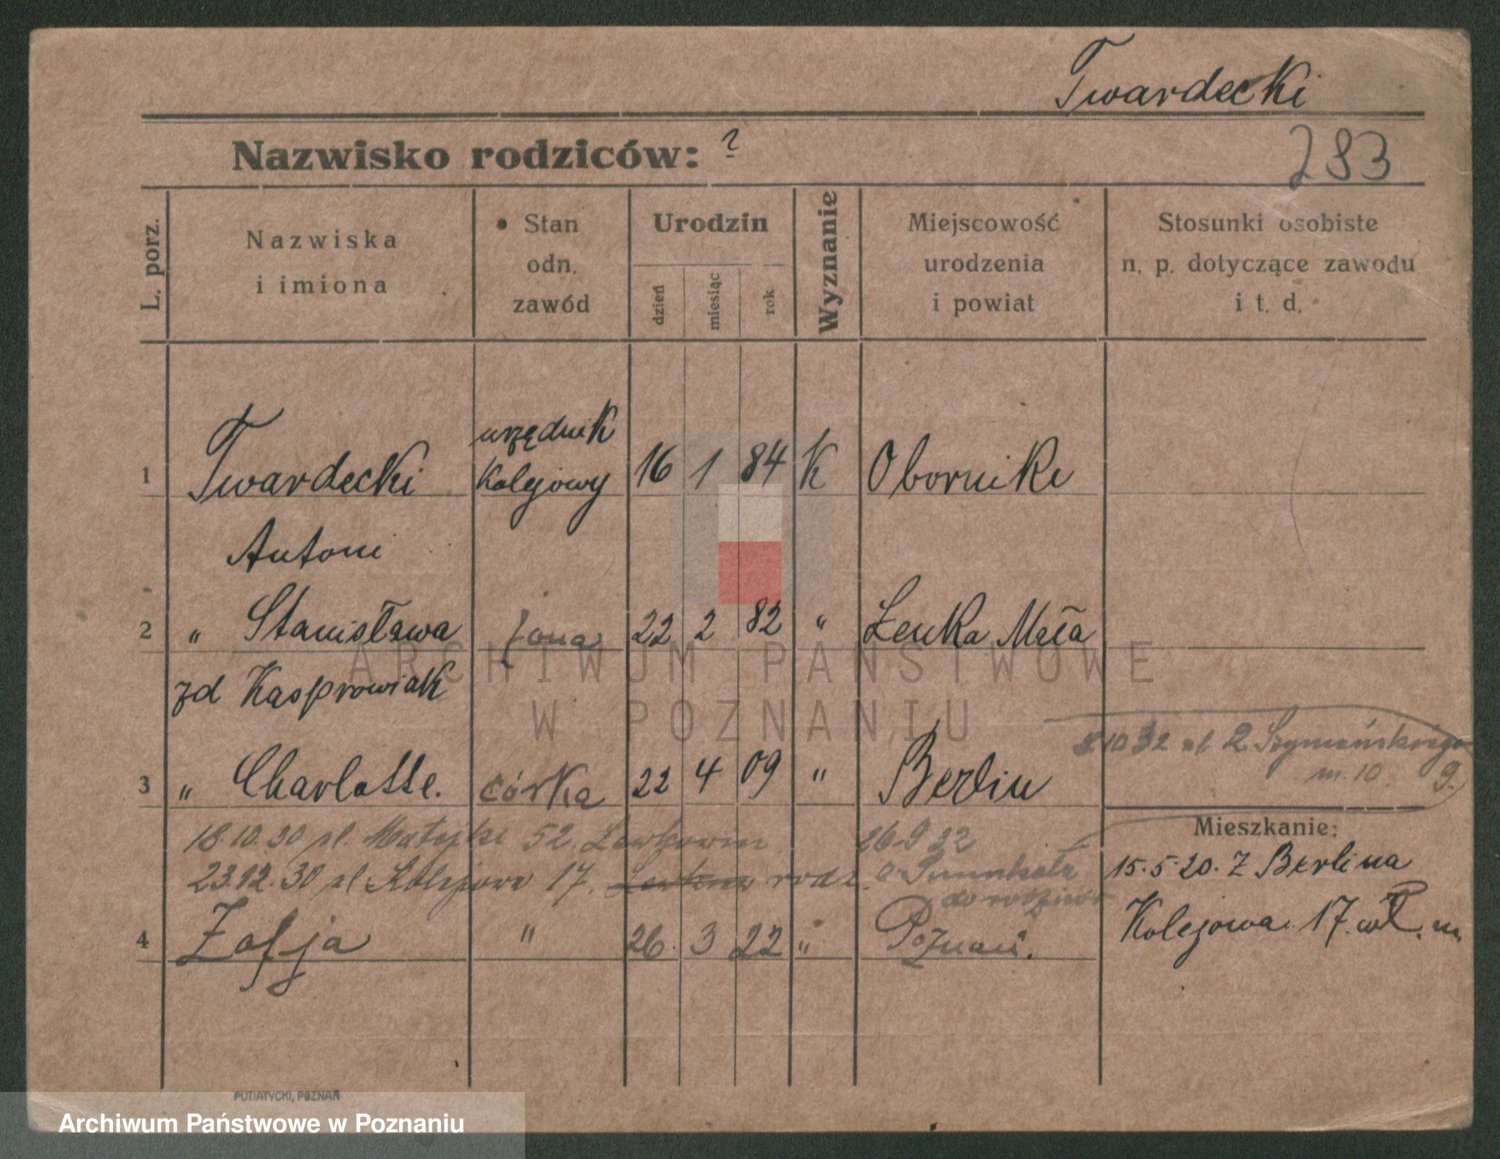 Twardecki
Nazwisko rodziców: ?
283
L. porz.
Nazwiska
i imiona
Stan
odn.
zawód
Urodzin
dzień
miesiąc
rok
Wyznanie
Miejscowość
urodzenia
i powiat
Stosunki osobiste
n. p. dotyczące zawodu
i t. d.
urzędnik
1 Twardecki kolejowy 16 1 84 K Oborniki
Antoni
2 " Stanisława żona 22 2 82 " Łenka Mała
zd Kasprowiak
10 32 ul 2 Szymańskiego
m. 10 9.
3 " Charlotte. córka 22 4 09 " Berlin
Mieszkanie:
18.10.30 ul. Matejki 52.
26 9 32
15.5.20. Z Berlina
23.12.30 ul Kolejowa 17. rodz.
do rodziców
Kolejowa 17. wł. m
4 Zofja " 26. 3 22 " Poznań.
PUTIATYCKI, POZNAŃ
ARCHIWUM PAŃSTWOWE
W POZNANIU
Archiwum Państwowe w Poznaniu